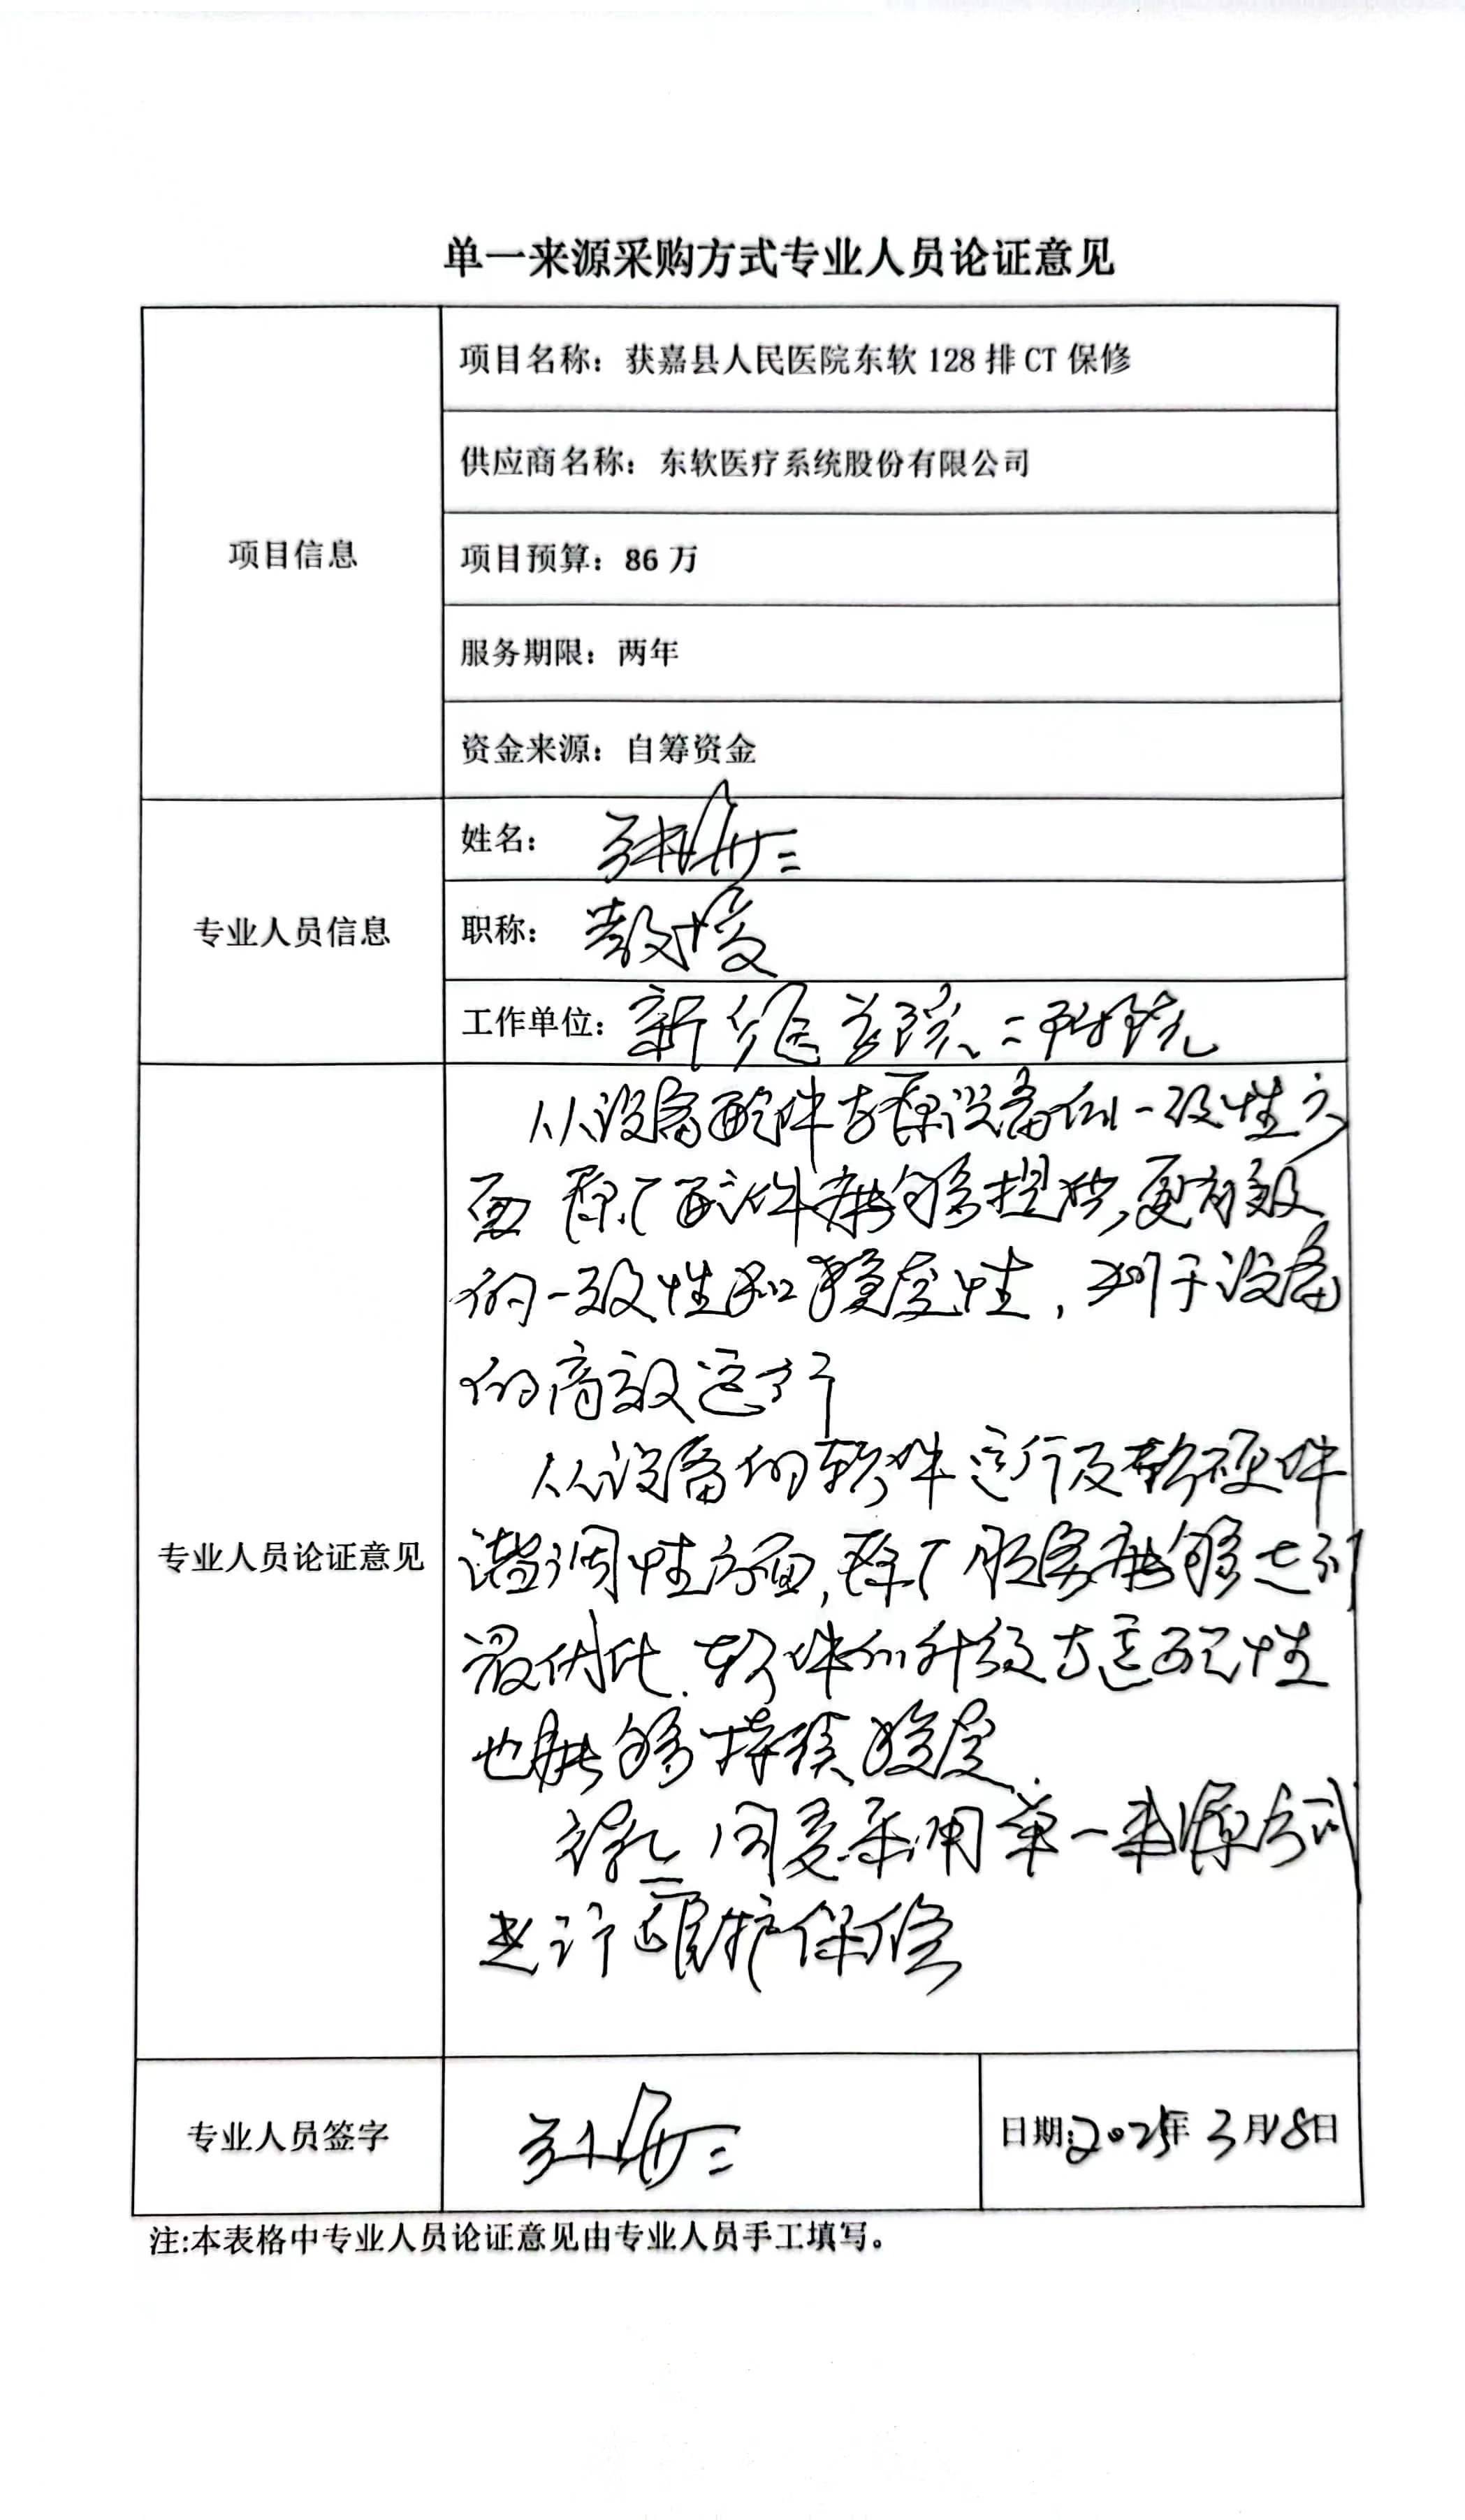 单一来源采购方式专业人员论证意见
项目信息
项目名称：获嘉县人民医院东软 128 排 CT 保修
供应商名称：东软医疗系统股份有限公司
项目预算：86 万
服务期限：两年
资金来源：自筹资金
专业人员信息
姓名：
职称：教授
工作单位：新乡医学院二附院
专业人员论证意见
从设备配件与原设备的一致性方
面 原厂配件能够提供更有效
的一致性和稳定性，利于设备
的高效运行
从设备的软件运行及软硬件
谐调性方面，原厂服务能够达到
最优化．软件的升级与适配性
也能够持续稳定．
同意采用单一来源方式
进行维护保修
专业人员签字
日期：2025年 3月18日
注:本表格中专业人员论证意见由专业人员手工填写。